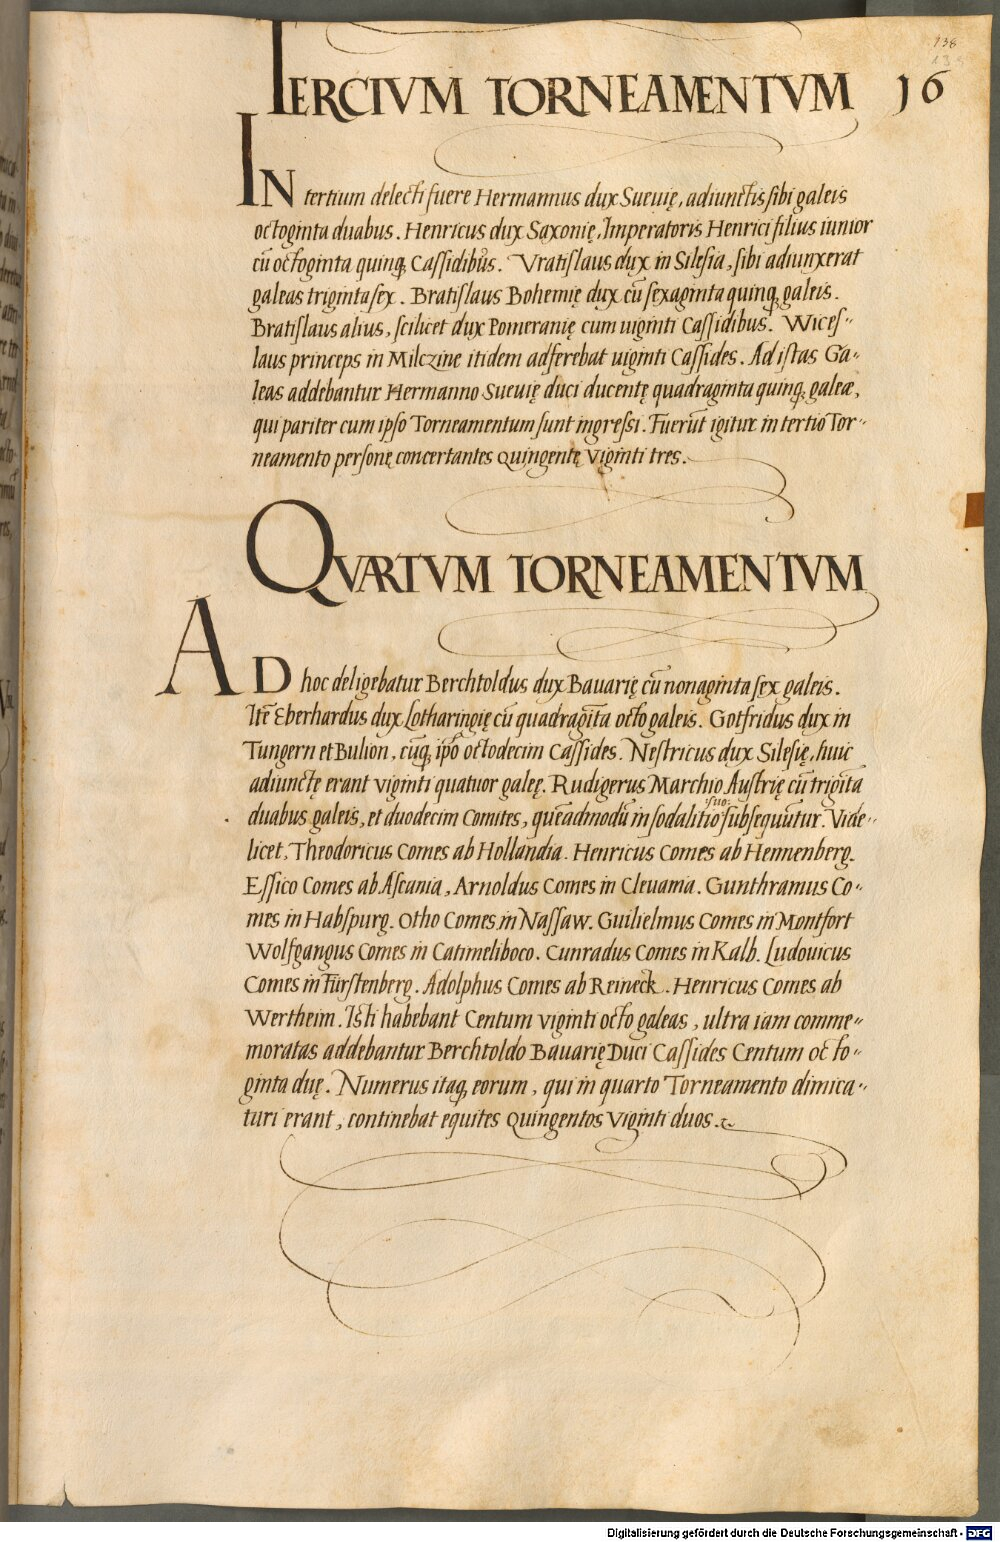 138
TERCIVM TORNEAMENTVM 16
IN tertium delecti fuere Hermannus dux Sueuię, adiunctis sibi galeis
octoginta duabus. Henricus dux Saxonię, Imperatoris Henrici filius iunior
cū octoginta quinq; Cassidibus. Vratislaus dux in Silesia, sibi adiunxerat
galeas triginta sex. Bratislaus Bohemię dux cū sexaginta quinq; galeis.
Bratislaus alius, scilicet dux Pomeranię cum uiginti Cassidibus. Wices-
laus princeps in Milczine itidem adferebat uiginti Cassides. Ad istas Ga-
leas addebantur Hermanno Sueuię duci ducentę quadraginta quinq; galeæ,
qui pariter cum ipso Torneamentum sunt ingressi. Fuerūt igitur in tertio Tor-
neamento personę concertantes Quingentę Viginti tres.
QVARTVM TORNEAMENTVM
AD hoc deligebatur Berchtoldus dux Bauarię cū nonaginta sex galeis.
Itē Eberhardus dux Lotharingię cū quadragīta octo galeis. Gotfridus dux in
Tungern et Bulion, cūq; ipso octodecim Cassides. Nestricus dux Silesię, huic
adiunctę erant viginti quatuor galeę. Rudigerus Marchio Austrię cū trigīta
duabus galeis, et duodecim Comites, quēadmodū in sodalitio suo subsequūtur. Vide-
licet, Theodoricus Comes ab Hollandia. Henricus Comes ab Hennenberg.
Essico Comes ab Ascania, Arnoldus Comes in Cleuania. Gunthramus Co-
mes in Habspurg. Otho Comes in Nassaw. Guilielmus Comes in Montfort
Wolfgangus Comes in Catimeliboco. Cunradus Comes in Kalb. Ludouicus
Comes in Fürstenberg. Adolphus Comes ab Reineck. Henricus Comes ab
Wertheim. Isti habebant Centum viginti octo galeas, ultra iam comme-
moratas addebantur Berchtoldo Bauarię Duci Cassides Centum octo-
ginta duę. Numerus itaq; eorum, qui in quarto Torneamento dimica-
turi erant, continebat equites Quingentos Viginti duos.
Digitalisierung gefördert durch die Deutsche Forschungsgemeinschaft - DFG